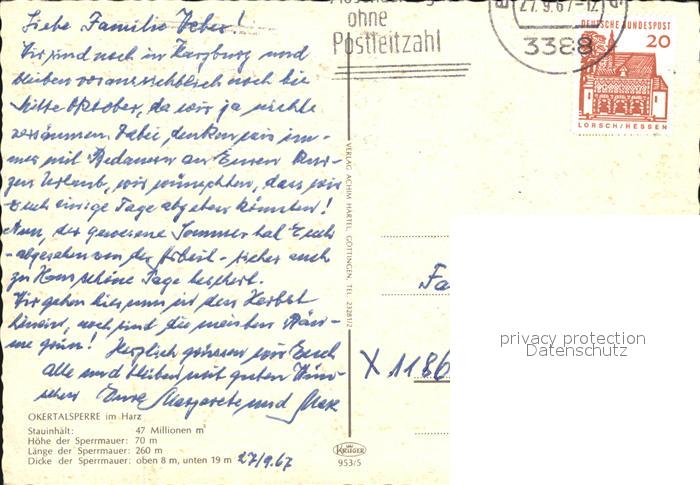 Liebe Familie Weber!
Wir sind noch in Harzburg und
bleiben voraussichtlich noch bis
Mitte Oktober, da wir ja nichts
versäumen. Dabei denken wir im-
mer mit Bedauern an Euren Kur-
zen Urlaub, wir wünschten, dass wir
Euch einige Tage abgeben könnten!
Nun, der gewesene Sommer hat Euch
- abgesehen von der Arbeit - sicher auch
zu Haus schöne Tage beschert.
Wir gehen hier nun in den Herbst
hinein, noch sind die meisten Bäu-
me grün! Herzlich grüssen wir Euch
alle und bleiben mit guten Wün-
schen Eure Margarete und Max
OKERTALSPERRE im Harz
Stauinhalt: 47 Millionen m³
Höhe der Sperrmauer: 70 m
Länge der Sperrmauer: 260 m
Dicke der Sperrmauer: oben 8 m, unten 19 m
27/9.67
VERLAG ACHIM HARTEL, GÖTTINGEN, TEL. 23281/2
KRÜGER
953/5
ohne
Postleitzahl
27.9.67-12
3388
DEUTSCHE BUNDESPOST
20
LORSCH/HESSEN
Fa
X 1186
privacy protection
Datenschutz